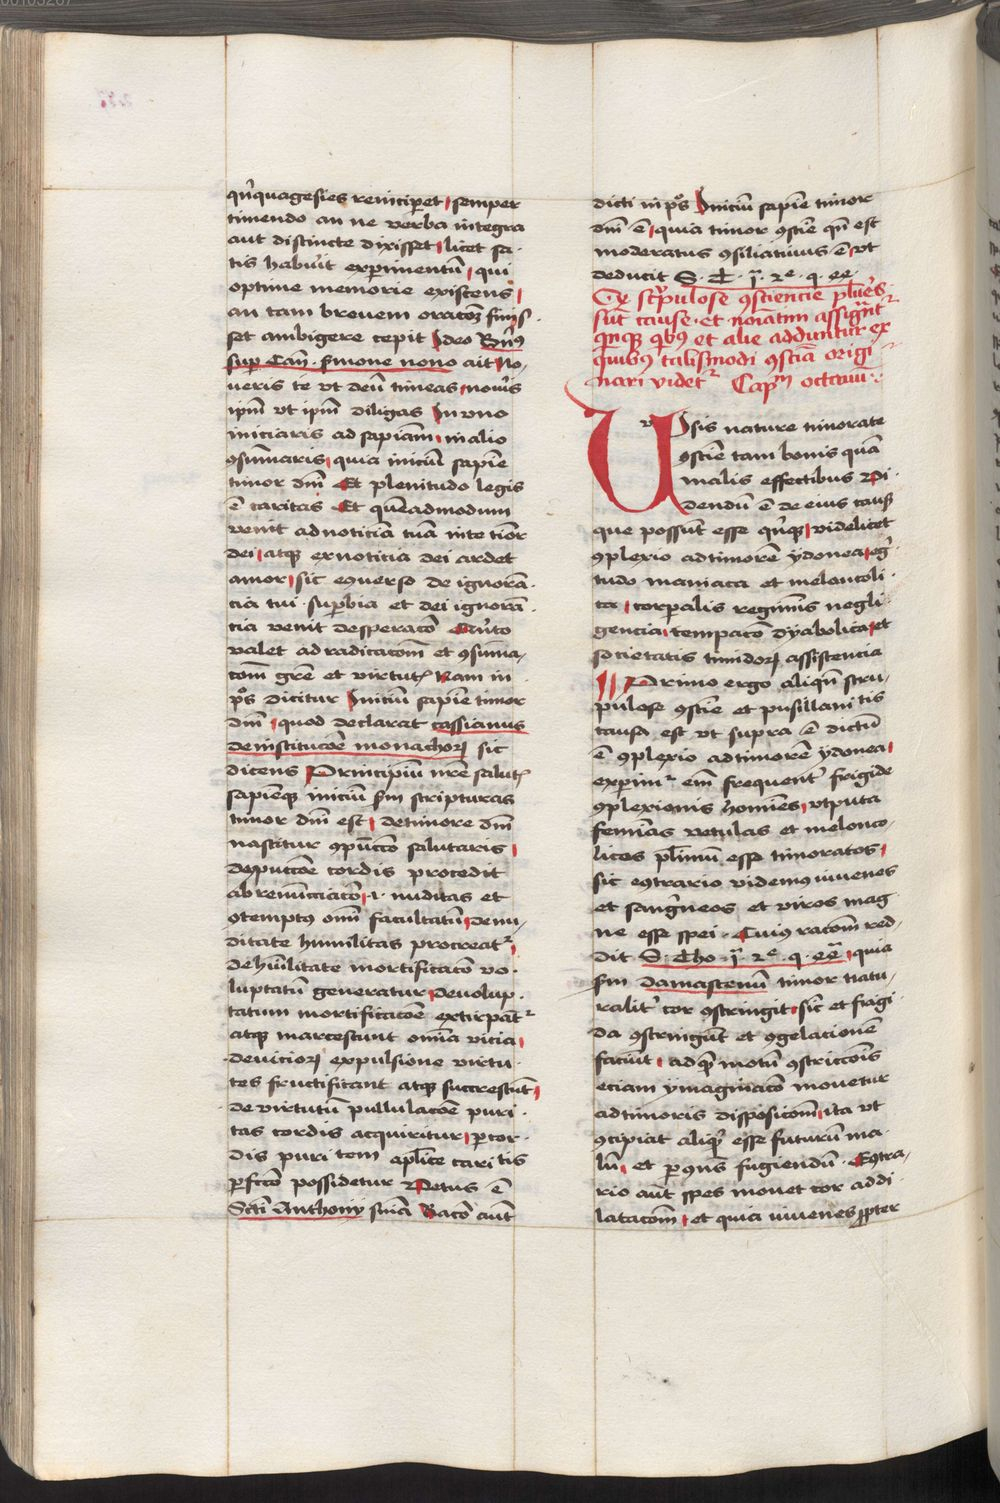 qn̄quagesies reinciperet semper
timendo an ne verba integra
aut distincte dixisset licet sa-
tis habuit experimentū qui
optime memorie existens
an tam brevem oratōȝ finis
set ambigere cepit Ideo Bn̄9
sup Can̄ · s̄mone nono ait No-
veris te vt deū timeas noūis
ipm̄ vt ipm̄ diligas In vno
iniciaris ad sapiam̄ in alio
ꝯsum̄aris quia iniciū sapīe
timor dn̄i Et plenitudo legis
ē caritas Et quēadmodum
venit ad noticiā tuā in te tīor
dei atqȝ ex noticia dei ardet
amor sic eꝯuerso de ignorā-
cia tui · supbia et dei ignorā-
cia venit desperacō Tm̄to
valet ad radicacōm et ꝯsuma-
cōm grē et virtutꝭ Nam in
pōs dicitur Iniciū sapīe timor
dn̄i quod declarat cassianus
de institucōe monachoꝝ sic
dicens Principiū nr̄e salutꝭ
sapieqȝ iniciū sm̄ scripturas
timor dn̄i est de timore dn̄i
nascitur ꝯpūccō salutaris
de ꝯpuccōe cordis procedit
abrenūnciacō ·i· nuditas et
ꝯtemptꝰ om̄ facultatū de nu-
ditate humilitas procreat᷑
de hūilitate mortificacō vo-
luptatū generatur de volup-
tatum mortificacōe extirpāt᷑
atqȝ marcescunt om̄ia vicia
de vicioꝝ expulsione virtu-
tes fructificant atqȝ succrescūt
de virtutū pullulacōe puri-
tas cordis acquiritur p cor-
dis puritem aplīce caritis
pfccō possidetur Petus ē
Scti Anthonij s̄nia Racō aūt
dicti in pōs Iniciū sapīe timor
dn̄i ē quia timor ꝯscīe qn̄ est
moderatus ꝯsiliatiuus ē vt
deducit S. T. ī. 2e. q. ee.
Qꝫ scrupulose ꝯsciencie plures
sūt cause · et noīatim assignt᷑
qnqȝ qbꝰ et alie adduntur ex
quibꝰ talismodi ꝯsciā origi
nari videt᷑ Capm̄ octauū
Visis nature timorate
ꝯscīe tam bonis quā
malis effectibus Vi-
dendū ē de eius causis
que possunt esse qn̄qȝ videlicet
ꝯplexio ad timorē ydonea eg̾
tudo maniaca et melancoli-
ca corpalis regiminis negli-
gencia temptacō dyabolica et
societatis timidoꝝ assistencia
Primo ergo aliqn̄ scru-
pulose ꝯscīe et pusillanitis
causa est vt supra ē dictū
ē ꝯplexio ad timorē ydonea
experim᷑ eīm frequent̾ frigide
ꝯplexionis homīes vtputa
femīas vetulas et melonco-
licos plīmū esse timoratos
sic eꝯtrario videmꝰ iuuenes
et sangneos et viros mag
ne esse spei · Cuiꝰ racōm red-
dit S. Tho. ī. 2e. q. ee quia
sm̄ damascenū timor natu-
ralit̾ cor ꝯstringit sic̄ et fragi
da ꝯstringūt et ꝯgelacionē
faciūt ad quē motū ꝯstriccōis
eciam ymaginacō mouetur
ad timoris disposicōm ita vt
ꝯcipiat aliqȝ esse futurū ma-
lū et p ꝯn̄s fugiendū · Eꝯtra-
rio aūt spes mouet cor ad di-
latacōm et quia iuuenes ppter